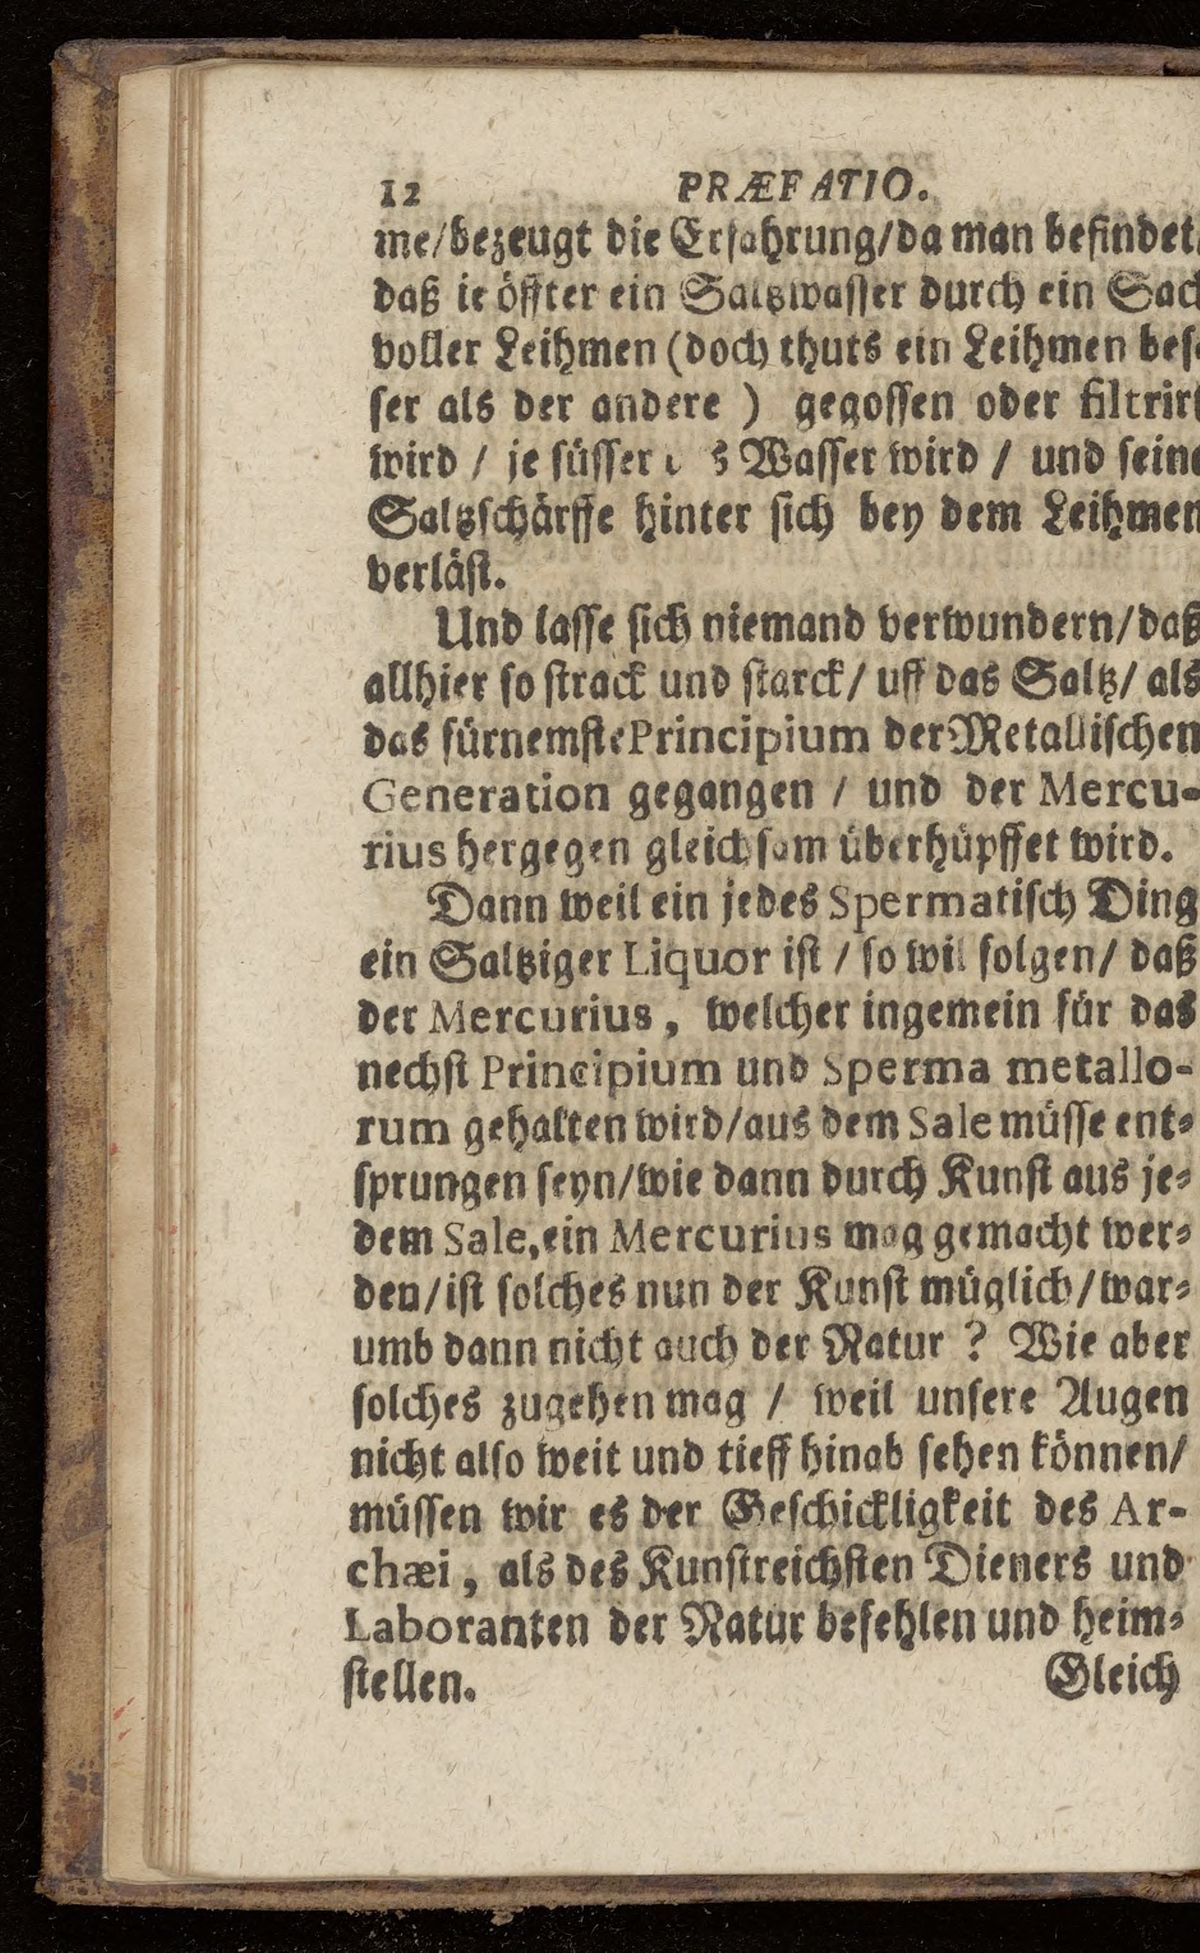 12 PRÆFATIO.
me/bezeugt die Erfahrung/da man befindet/
daß ie öffter ein Saltzwasser durch ein Sack
voller Leihmen (doch thuts ein Leihmen bes-
ser als der andere ) gegossen oder filtrirt
wird / je süsser Wasser wird / und seine
Saltzschärffe hinter sich bey dem Leihmen
verläst.
Und lasse sich niemand verwundern/daß
allhier so strack und starck/ uff das Saltz/ als
das fürnemste Principium der Metallischen
Generation gegangen / und der Mercu-
rius hergegen gleichsam überhüpffet wird.
Dann weil ein jedes Spermatisch Ding
ein Saltziger Liquor ist / so wil folgen/ daß
der Mercurius, welcher ingemein für das
nechst Principium und Sperma metallo-
rum gehalten wird/aus dem Sale müsse ent-
sprungen seyn/wie dann durch Kunst aus je-
dem Sale, ein Mercurius mag gemacht wer-
den/ist solches nun der Kunst müglich/war-
umb dann nicht auch der Natur ? Wie aber
solches zugehen mag / weil unsere Augen
nicht also weit und tieff hinab sehen können/
müssen wir es der Geschickligkeit des Ar-
chæi, als des Kunstreichsten Dieners und
Laboranten der Natur befehlen und heim-
stellen. Gleich